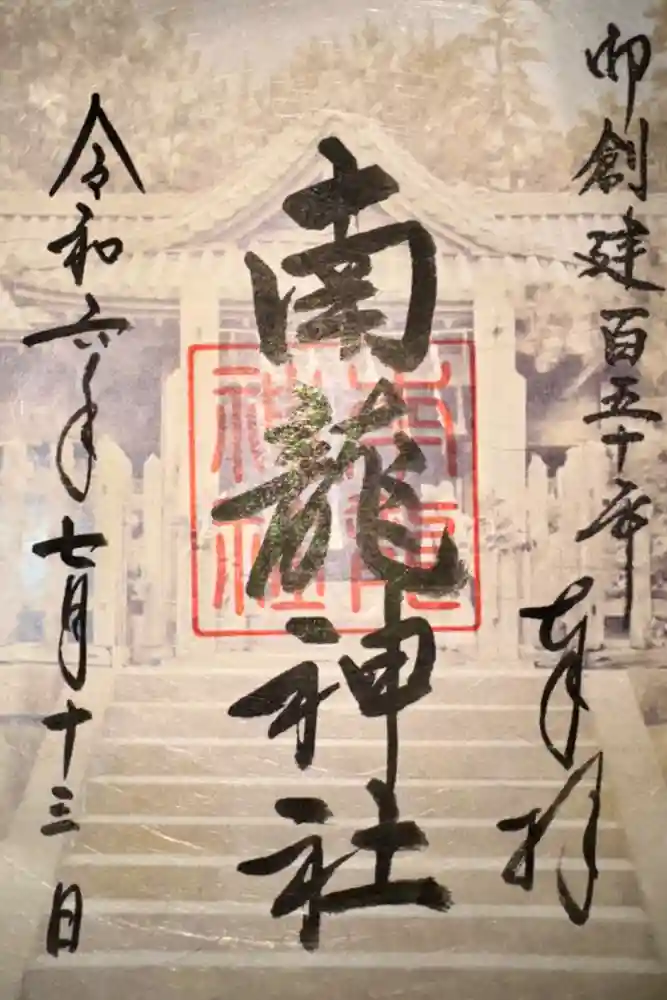 御創建百五十年
奉拝
南龍神社
南龍
神社
令和六年七月十三日